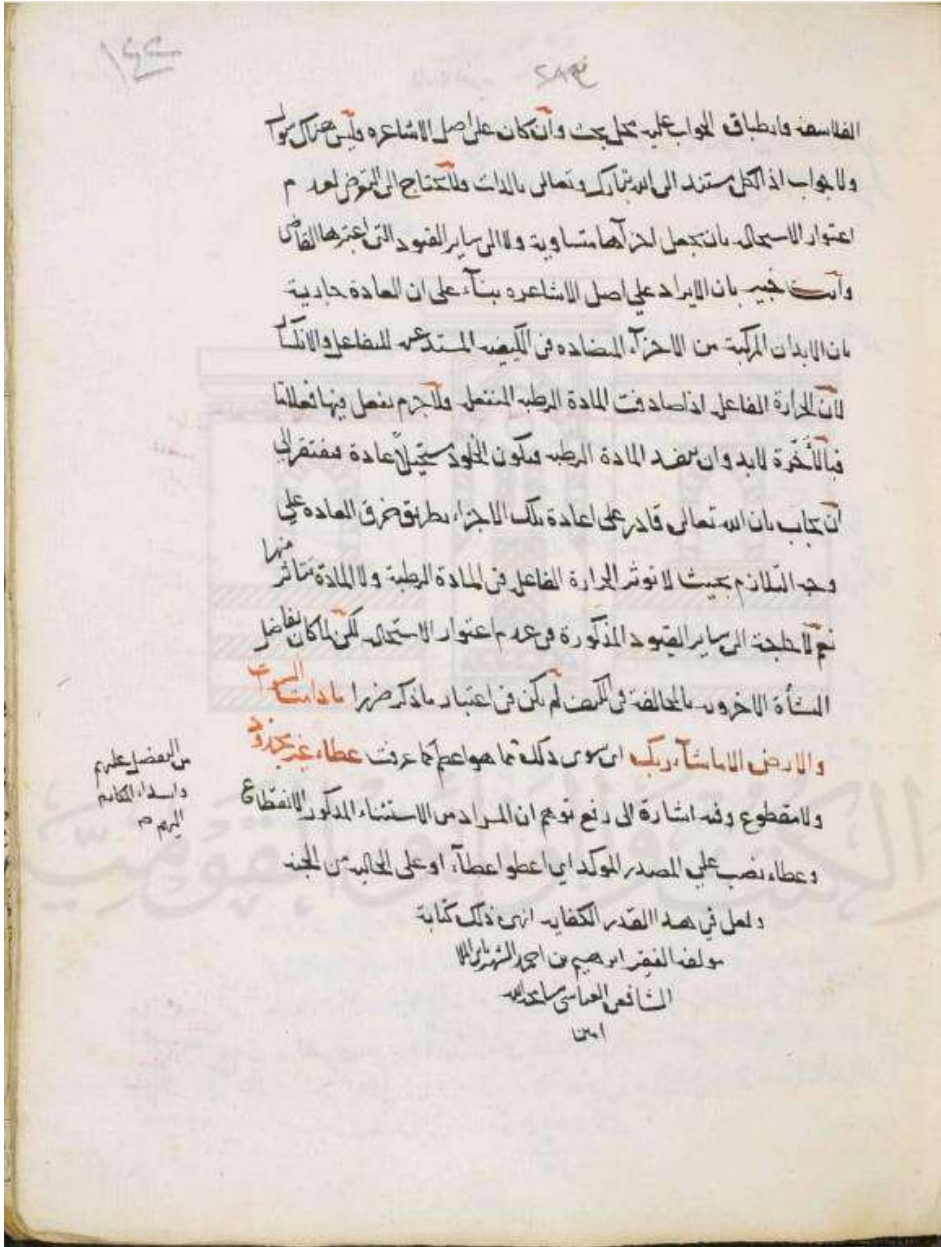 الفلاسفه وانطباق الجواب عليه محل بحث وان كان على اصل الاشاعره فليس هناك سوال
ولا جواب اذ الكل مستند الى الله تبارك وتعالى بالذات ولا يحتاج الى التعرض لعدم
اعتوار الاستحاله بان يجعل اجزآها متساوية ولا الى ساير القيود التى اعتبرها القاضى
وانت خبير بان الايراد على اصل الاشاعره بنآء على ان العادة جارية
بان الابدان المركبة من الاجزآء المتضاده فى الكيفيه المستدعيه للتفاعل والانكسار
لان الحرارة الفاعل اذا صادفت المادة الرطبه المنفعل فلا جرم تفعل فيها فعلا
فبالأخرة لابد وان تنفد المادة الرطبه فيكون الخلود مستحيلا عادة فيفتقر الى
ان يجاب بان الله تعالى قادر على اعادة تلك الاجزاء بطريق خرق العاده على
وجه التلازم بحيث لا توثر الحرارة الفاعل فى المادة الرطبة ولا المادة تتاثر منها
نعم لا حاجة الى ساير القيود المذكورة فى عدم اعتوار الاستحاله لكن لما كان تفاصيل
النشأة الاخرويه بالمخالفه فى الكيف لم يكن فى اعتبار ما ذكر ضررا ما دامت السموات
والارض الا ما شآء ربك اى سوى ذلك مما هو اعظم كما عرفت عطاء غير مجذوذ
ولا مقطوع وفيه اشارة الى رفع توهم ان المراد من الاستثناء المذكور الانقطاع
وعطاء نصب على المصدر الموكد اي اعطوا عطآء او على الحاليه من الجنه
ولعل في هذا القدر الكفايه انهى ذلك كتابة
مولفه الفقير ابرهيم بن احمد الشهير بابن الملا
الشافعي العباسي سامحه الله
امين
من التفضل عليهم
واسداء المكارم
اليهم